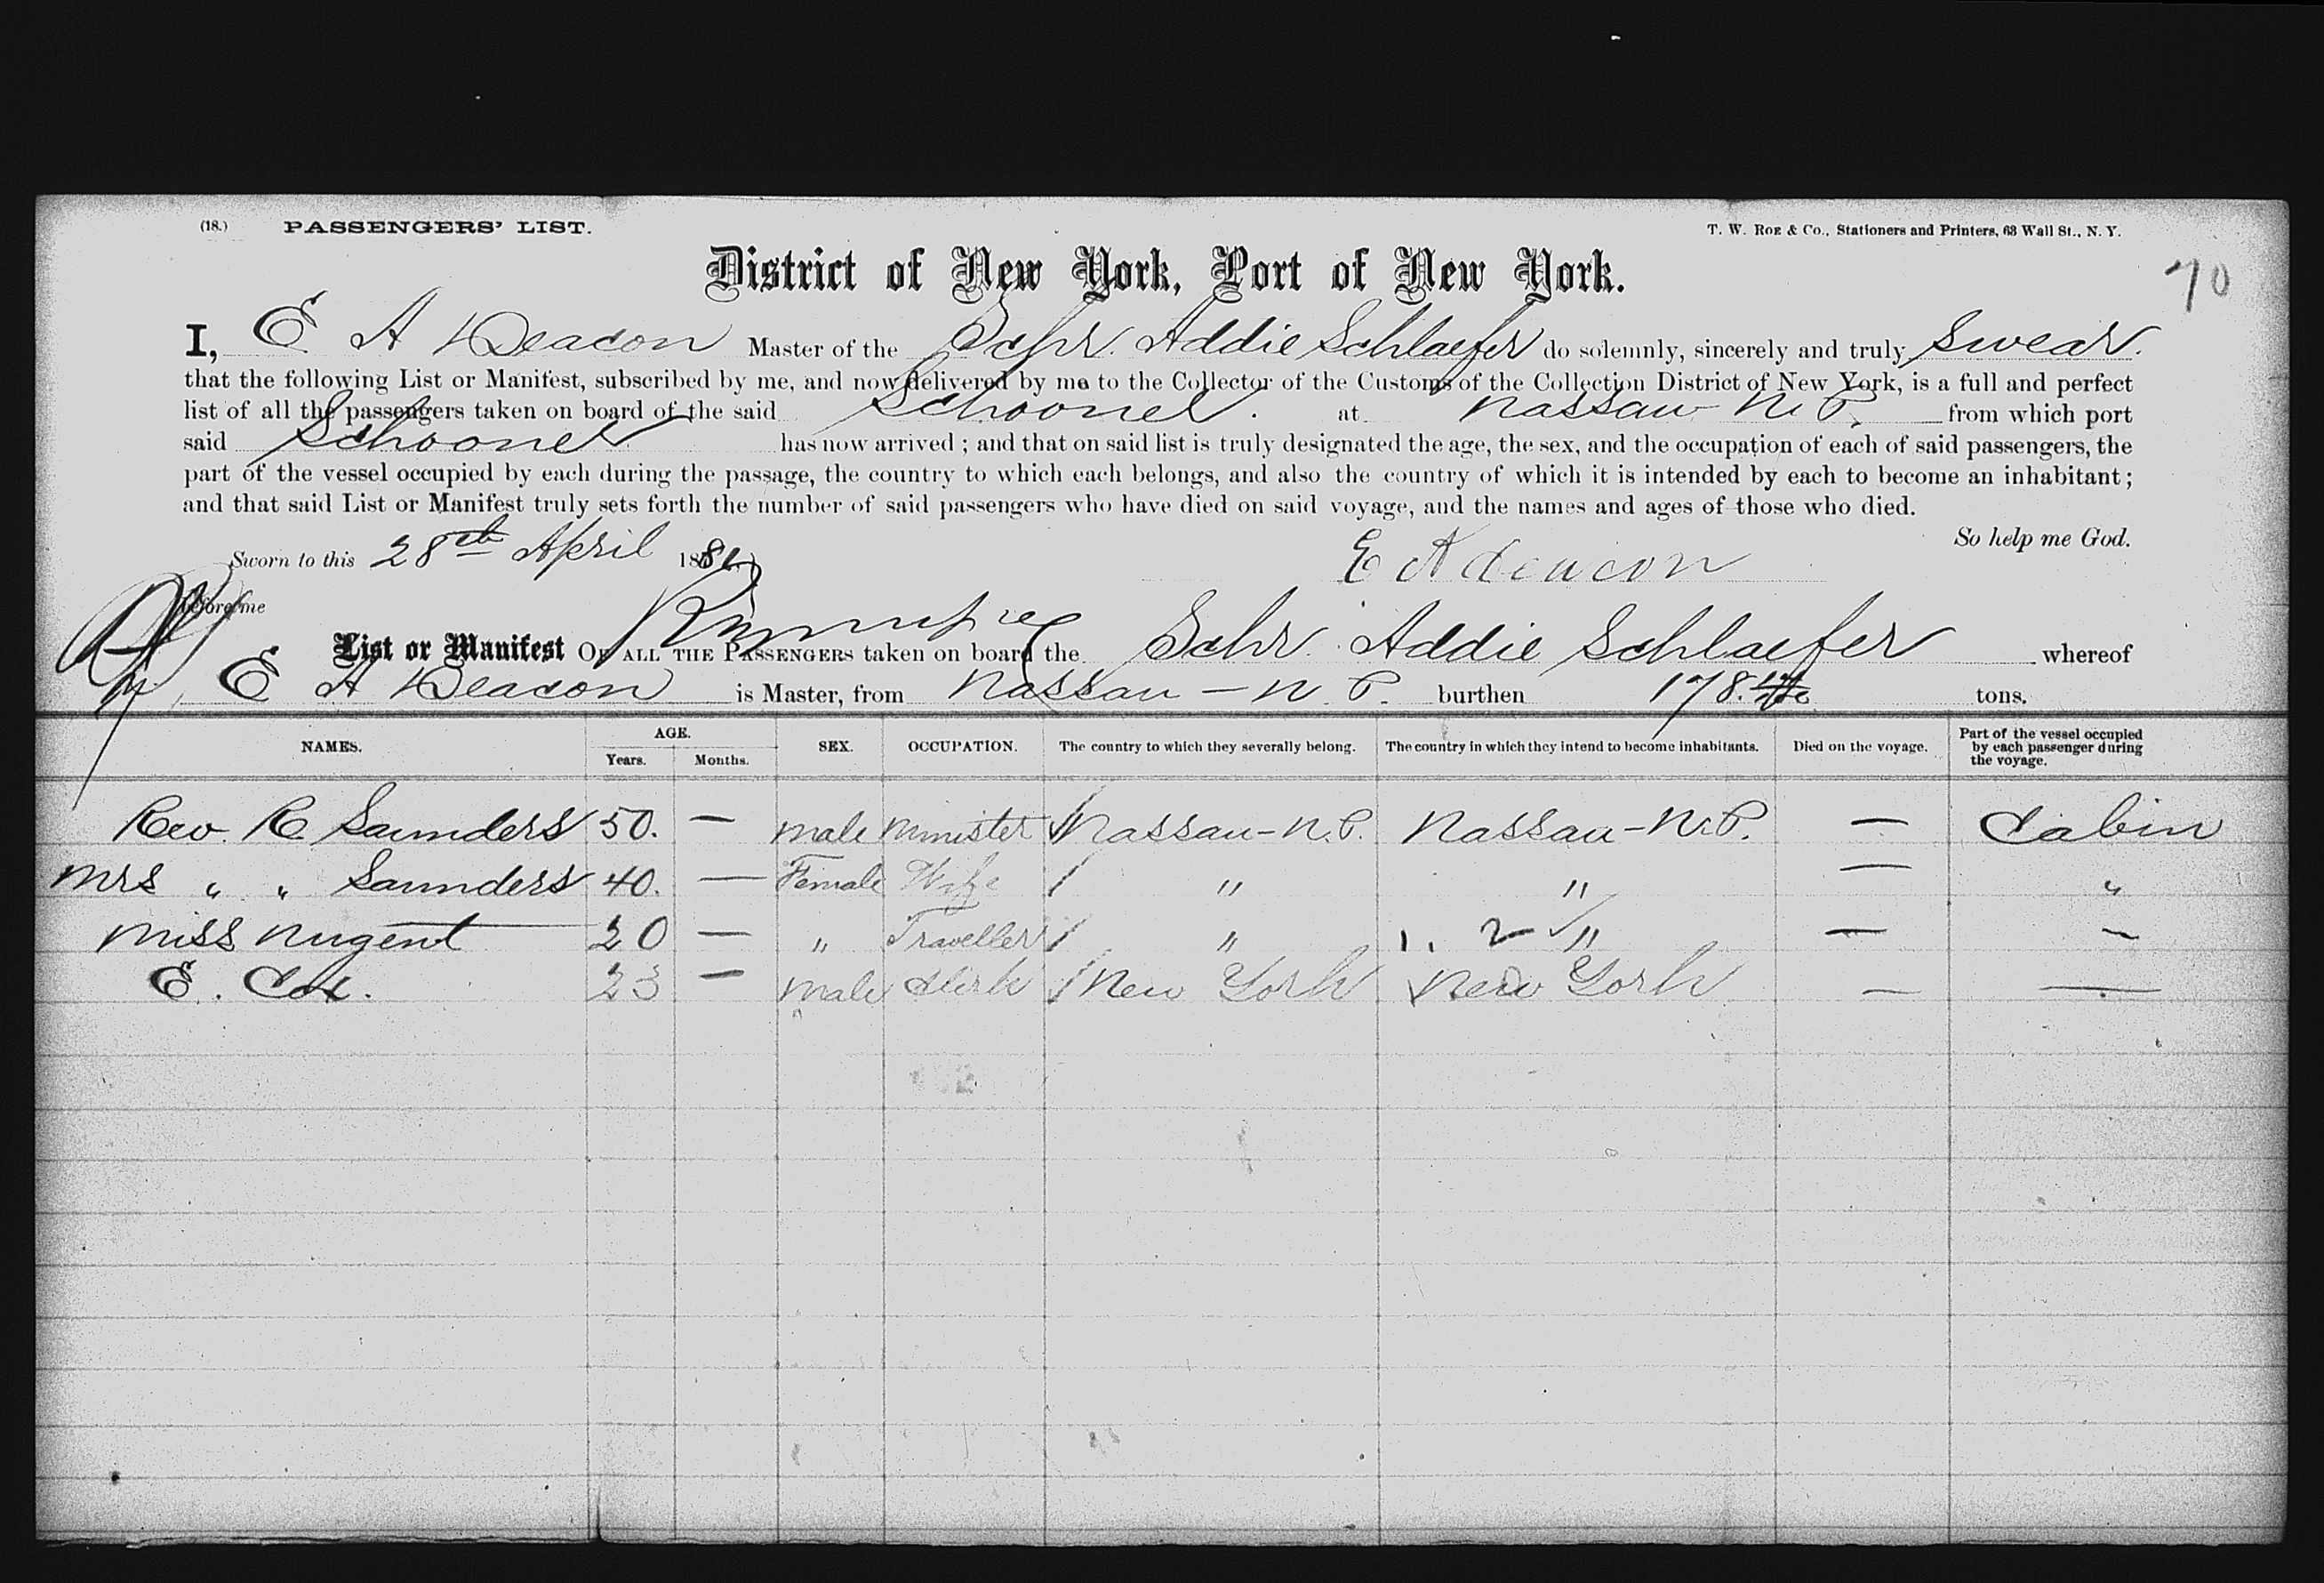 (18.) PASSENGERS' LIST. T. W. Roe & Co., Stationers and Printers, 63 Wall St., N. Y.
70
District of New York, Port of New York.
I, E A Deacon Master of the Schr. Addie Schlaefer do solemnly, sincerely and truly swear.
that the following List or Manifest, subscribed by me, and now delivered by me to the Collector of the Customs of the Collection District of New York, is a full and perfect
list of all the passengers taken on board of the said Schooner. at Nassau N. P. from which port
said Schooner has now arrived ; and that on said list is truly designated the age, the sex, and the occupation of each of said passengers, the
part of the vessel occupied by each during the passage, the country to which each belongs, and also the country of which it is intended by each to become an inhabitant ;
and that said List or Manifest truly sets forth the number of said passengers who have died on said voyage, and the names and ages of those who died.
So help me God.
Sworn to this 28th April 188 E A deacon
Before me
List or Manifest OF ALL THE PASSENGERS taken on board the Schr. Addie Schlaefer whereof
E A Deacon is Master, from Nassau — N. P. burthen 178. tons.
NAMES. AGE. Years. Months. SEX. OCCUPATION. The country to which they severally belong. The country in which they intend to become inhabitants. Died on the voyage. Part of the vessel occupied by each passenger during the voyage.
Rev. R. Saunders 50. — male Minister Nassau - N. P. Nassau - N. P. — Cabin
Mrs " " Saunders 40. — Female Wife / " " — "
Miss Nugent 20 — " Traveller / " 1. 2 ✓ " — ~
E. Cox. 23 — male Clerk / New York New York — —